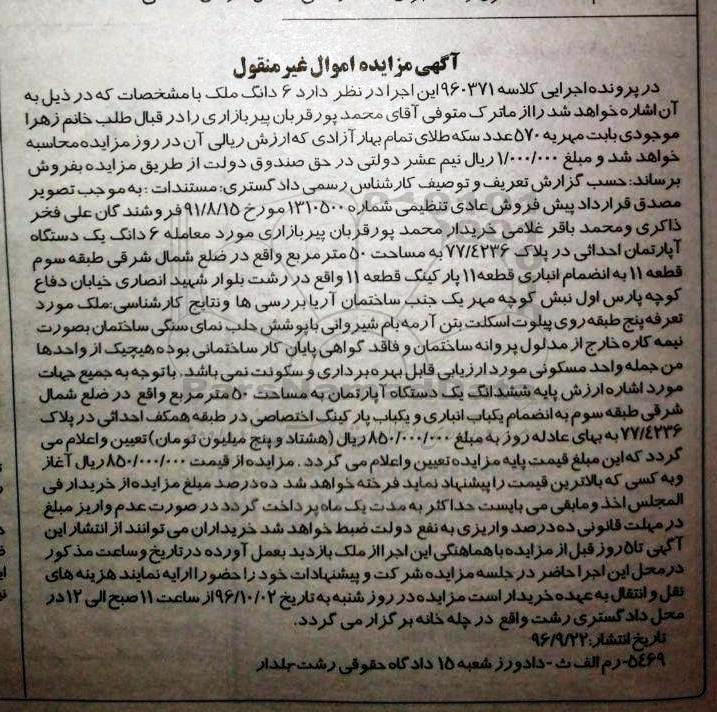 آگهی مزایده اموال غیر منقول
در پرونده اجرایی کلاسه ۹۶۰۳۷۱ این اجرا در نظر دارد ۶ دانگ ملک با مشخصات که در ذیل به
آن اشاره خواهد شد را از ماترک متوفی آقای محمد پورقربان پیربازاری را در قبال طلب خانم زهرا
موجودی بابت مهریه ۵۷۰ عدد سکه طلای تمام بهار آزادی که ارزش ریالی آن در روز مزایده محاسبه
خواهد شد و مبلغ ۱/۰۰۰/۰۰۰ ریال نیم عشر دولتی در حق صندوق دولت از طریق مزایده بفروش
برساند: حسب گزارش تعریف و توصیف کارشناس رسمی دادگستری: مستندات : به موجب تصویر
مصدق قرارداد پیش فروش عادی تنظیمی شماره ۱۳۱۰۵۰۰ مورخ ۹۱/۸/۱۵ فروشندگان علی فخر
ذاکری و محمد باقر غلامی خریدار محمد پورقربان پیربازاری مورد معامله ۶ دانگ یک دستگاه
آپارتمان احداثی در پلاک ۷۷/۴۲۳۶ به مساحت ۵۰ متر مربع واقع در ضلع شمال شرقی طبقه سوم
قطعه ۱۱ به انضمام انباری قطعه ۱۱ پارکینگ قطعه ۱۱ واقع در رشت بلوار شهید انصاری خیابان دفاع
کوچه پارس اول نبش کوچه مهر یک جنب ساختمان آریا بررسی ها و نتایج کارشناسی: ملک مورد
تعرفه پنج طبقه روی پیلوت اسکلت بتن آرمه بام شیروانی با پوشش حلب نمای سنگی ساختمان بصورت
نیمه کاره خارج از مدلول پروانه ساختمان و فاقد گواهی پایان کار ساختمانی بوده هیچیک از واحدها
من جمله واحد مسکونی مورد ارزیابی قابل بهره برداری و سکونت نمی باشد. با توجه به جمیع جهات
مورد اشاره ارزش پایه ششدانگ یک دستگاه آپارتمان به مساحت ۵۰ متر مربع واقع در ضلع شمال
شرقی طبقه سوم به انضمام یکباب انباری و یکباب پارکینگ اختصاصی در طبقه همکف احداثی در پلاک
۷۷/۴۲۳۶ به بهای عادله روز به مبلغ ۸۵۰/۰۰۰/۰۰۰ ریال (هشتاد و پنج میلیون تومان) تعیین و اعلام می
گردد که این مبلغ قیمت پایه مزایده تعیین و اعلام می گردد . مزایده از قیمت ۸۵۰/۰۰۰/۰۰۰ ریال آغاز
و به کسی که بالاترین قیمت را پیشنهاد نماید فرخته خواهد شد ده درصد مبلغ مزایده از خریدار فی
المجلس اخذ و مابقی می بایست حداکثر به مدت یک ماه پرداخت گردد در صورت عدم واریز مبلغ
در مهلت قانونی ده درصد واریزی به نفع دولت ضبط خواهد شد خریداران می توانند از انتشار این
آگهی تا ۵ روز قبل از مزایده با هماهنگی این اجرا از ملک بازدید بعمل آورده در تاریخ و ساعت مذکور
در محل این اجرا حاضر در جلسه مزایده شرکت و پیشنهادات خود را حضورا ارایه نمایند هزینه های
نقل و انتقال به عهده خریدار است مزایده در روز شنبه به تاریخ ۹۶/۱۰/۰۲ از ساعت ۱۱ صبح الی ۱۲ در
محل دادگستری رشت واقع در چله خانه برگزار می گردد.
تاریخ انتشار: ۹۶/۹/۲۲
۵۴۶۹- رم الف ث - دادورز شعبه ۱۵ دادگاه حقوقی رشت - جلدار